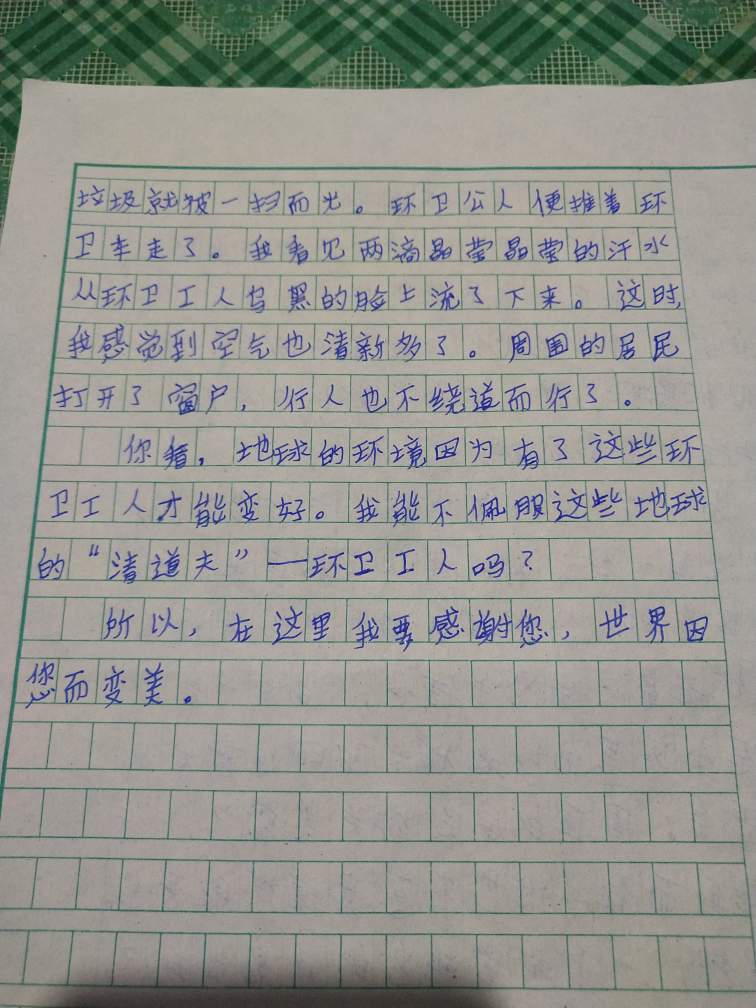 垃圾就被一扫而光。环卫公人便推着环
卫车走了。我看见两滴晶莹晶莹的汗水
从环卫工人乌黑的脸上流了下来。这时,
我感觉到空气也清新多了。周围的居民
打开了窗户,行人也不绕道而行了。
你看,地球的环境因为有了这些环
卫工人才能变好。我能不佩服这些地球
的“清道夫”—环卫工人吗?
所以,在这里我要感谢您,世界因
您而变美。